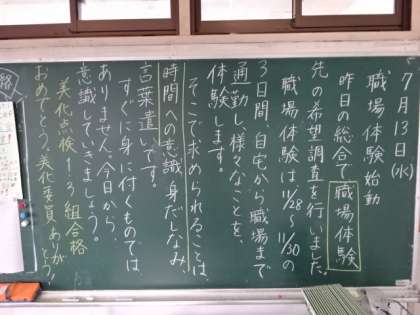 7月13日(水)
職場体験始動
昨日の総合で職場体験
先の希望調査を行いました。
職場体験は11/28〜11/30の
3日間、自宅から職場まで
通勤し、様々なことを、
体験します。
そこで求められることは、
時間への意識、身だしなみ、
言葉遣いです。
すぐに身に付くものでは
ありません。今日から、
意識していきましょう。
美化点検1-3組合格
おめでとう。美化委員ありがとう。
絡